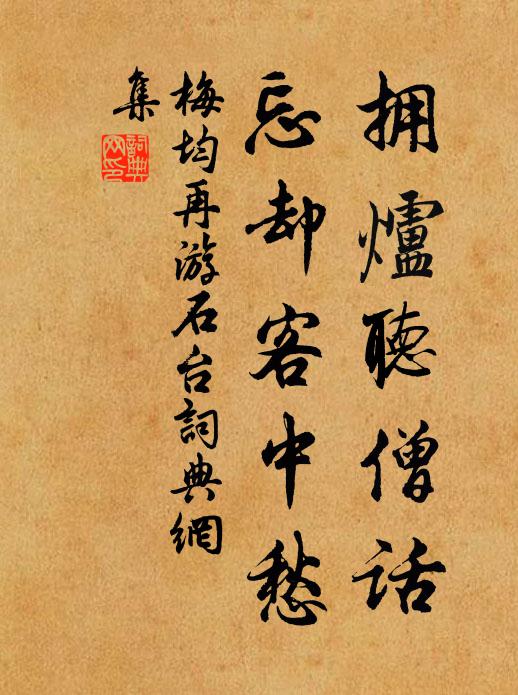 拥爐聽僧话
忘却客中愁
梅均再游石台詞典網
集
詞典
网印